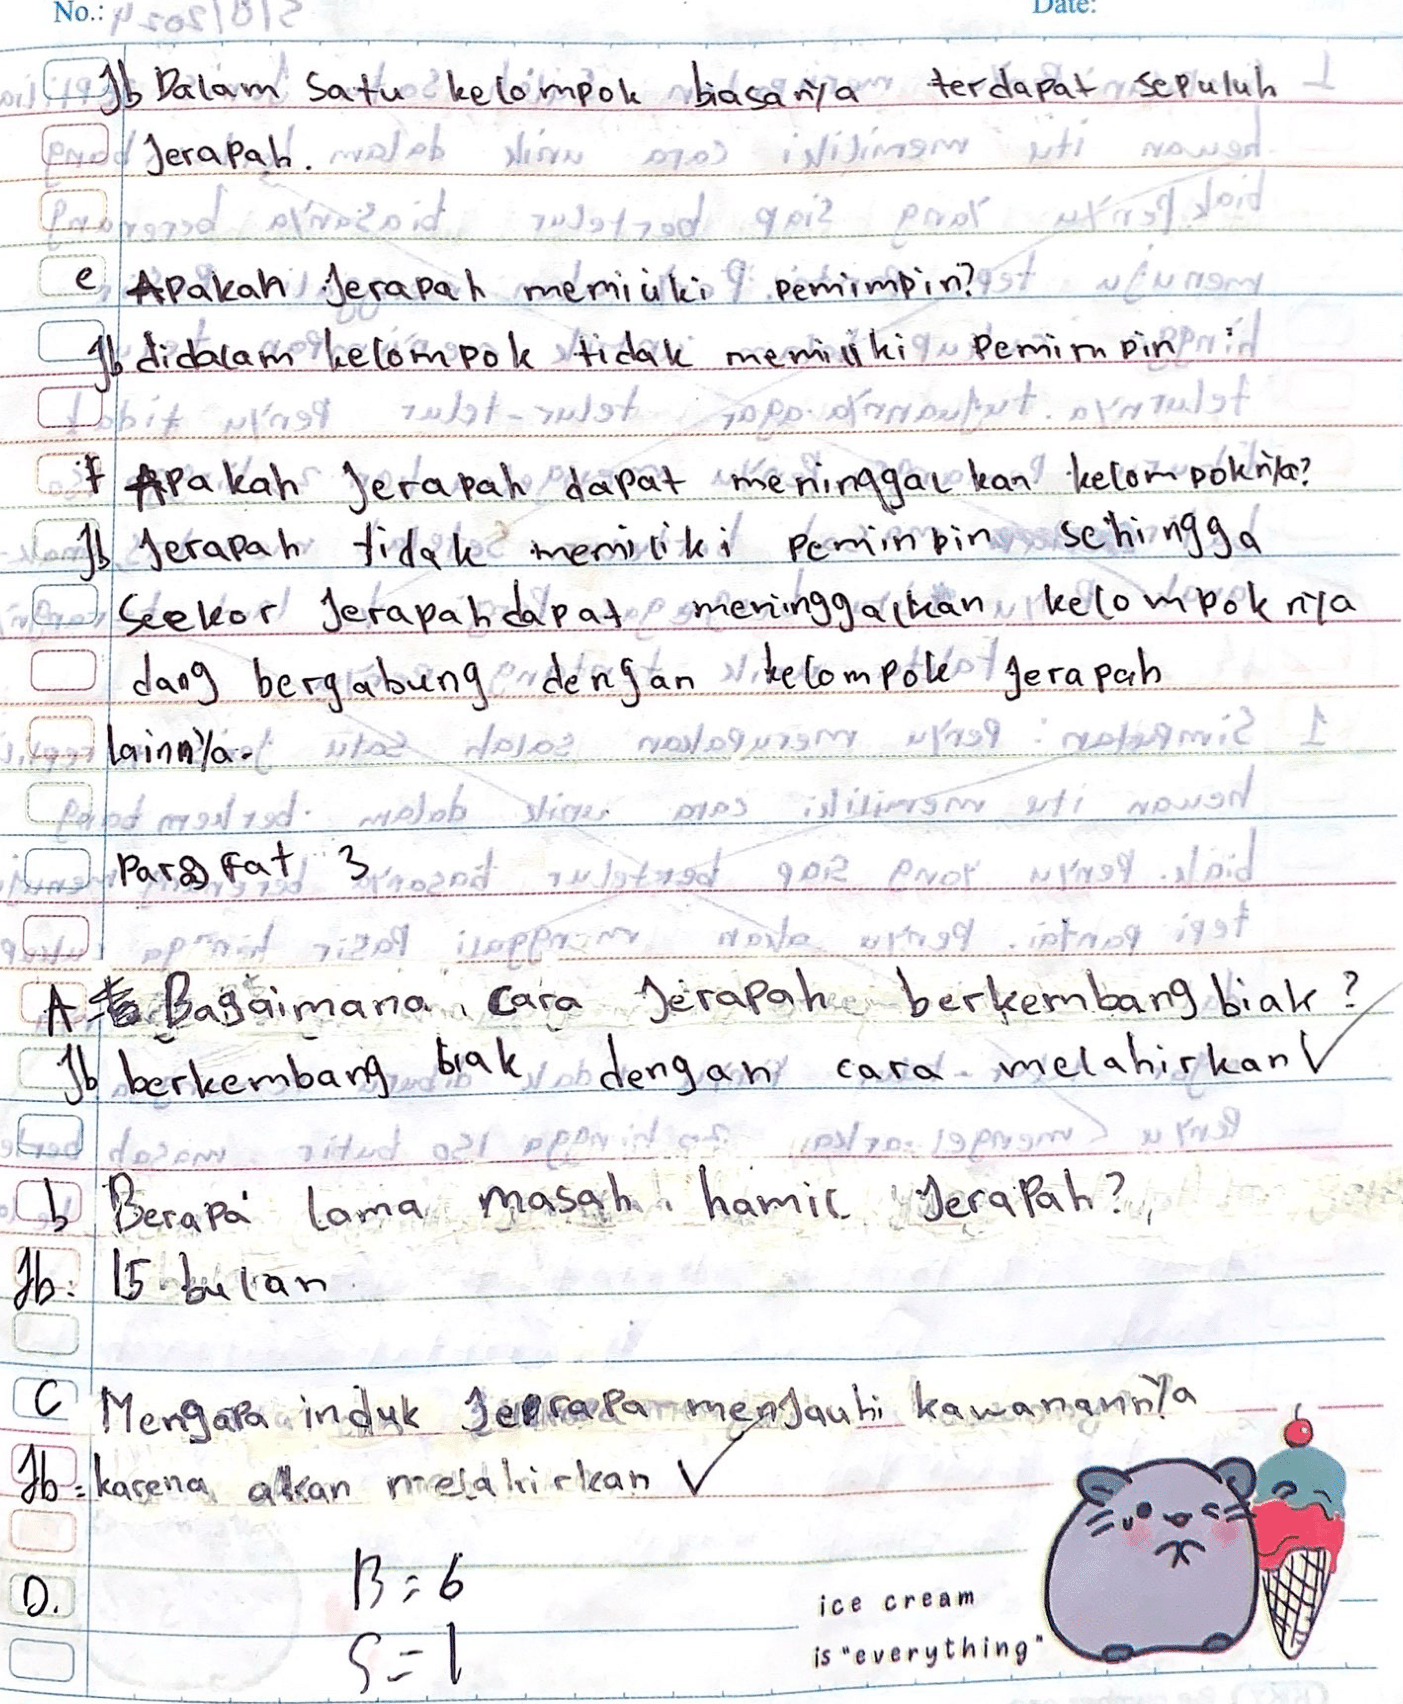 No.:
Date:
Jb Dalam satu kelompok biasanya terdapat sepuluh
Jerapah.
e Apakah Jerapah memiliki pemimpin?
Jb didalam kelompok tidak memiliki pemimpin
f Apakah Jerapah dapat meninggalkan kelompoknya?
Jb Jerapah tidak memiliki peminpin sehingga
Seekor Jerapah dapat meninggalkan kelompoknya
dang bergabung dengan kelompok Jerapah
lainnya.
Paragfat 3
A Bagaimana cara Jerapah berkembang biak?
Jb berkembang biak dengan cara melahirkan
b Berapa lama masah hamil Jerapah?
Jb: 15 bulan
C Mengapa induk Jerapa menjauhi kawanannya
Jb = karena akan melahirkan
D.
B = 6
S = 1
ice cream
is "everything"